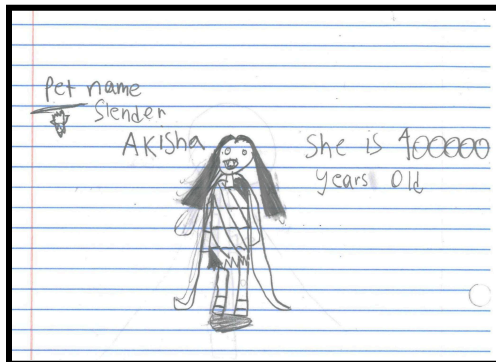 Pet name
Slender
AKisha
She is 400000
years old